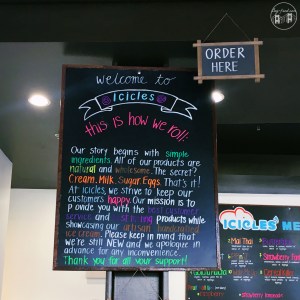 ORDER
HERE
welcome to
Icicles
this is how we roll:
Our story begins with simple
ingredients. All of our products are
natural and wholesome. The secret?
Cream. Milk. Sugar. Eggs. That's it!
At icicles, we strive to keep our
customers happy. Our mission is to
provide you with the best customer
service and products while
showcasing our artisan handcrafted
ice cream. Please keep in mind that
we're still NEW and we apologize in
advance for any inconvenience.
Thank you for all your support!
ICICLES' ME
Mai Thai